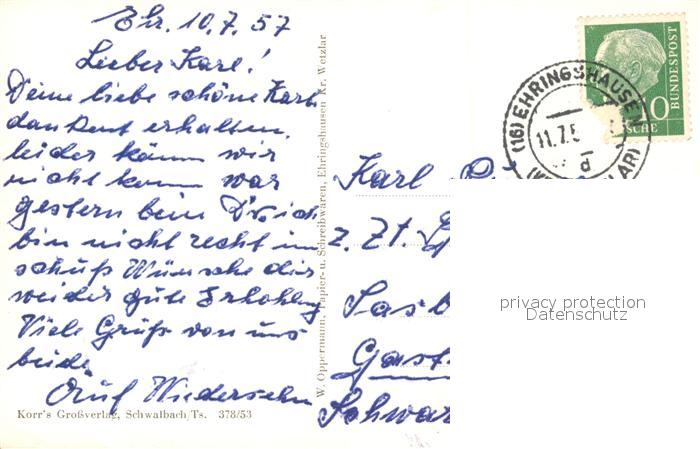 Ehr. 10.7.57
Lieber Karl!
Deine liebe schöne Karte
dankent erhalten,
leider könn wir
nicht komm war
gestern beim
bin nicht recht im
schuß Wünsche dir
weider gute Erhohlung
Viele Grüße von uns
beide.
Auf Wiedersehn
Korr's Großverlag, Schwalbach/Ts. 378/53
W. Oppermann, Papier- u. Schreibwaren, Ehringshausen Kr. Wetzlar
10
BUNDESPOST
SCHE
(16) EHRINGSHAUSEN
11.7.5
d
LAR)
Karl
z. Zt.
Sasb
Gast
Schwar
privacy protection
Datenschutz